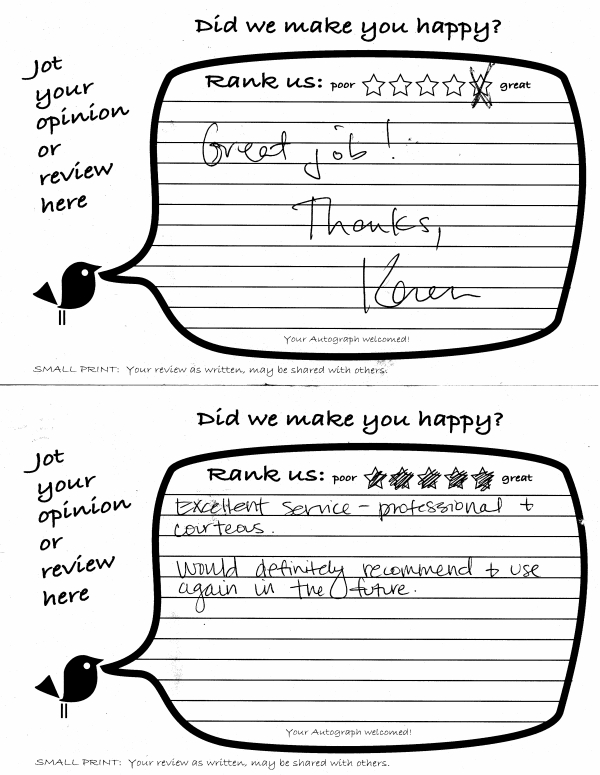 Did we make you happy?
Jot
your
opinion
or
review
here
Rank us: poor great
Great job!
Thanks,
Karen
Your Autograph welcomed!
SMALL PRINT: Your review as written, may be shared with others.
Did we make you happy?
Jot
your
opinion
or
review
here
Rank us: poor great
Excellent service - professional +
courteous.
Would definitely recommend + use
again in the future.
Your Autograph welcomed!
SMALL PRINT: Your review as written, may be shared with others.